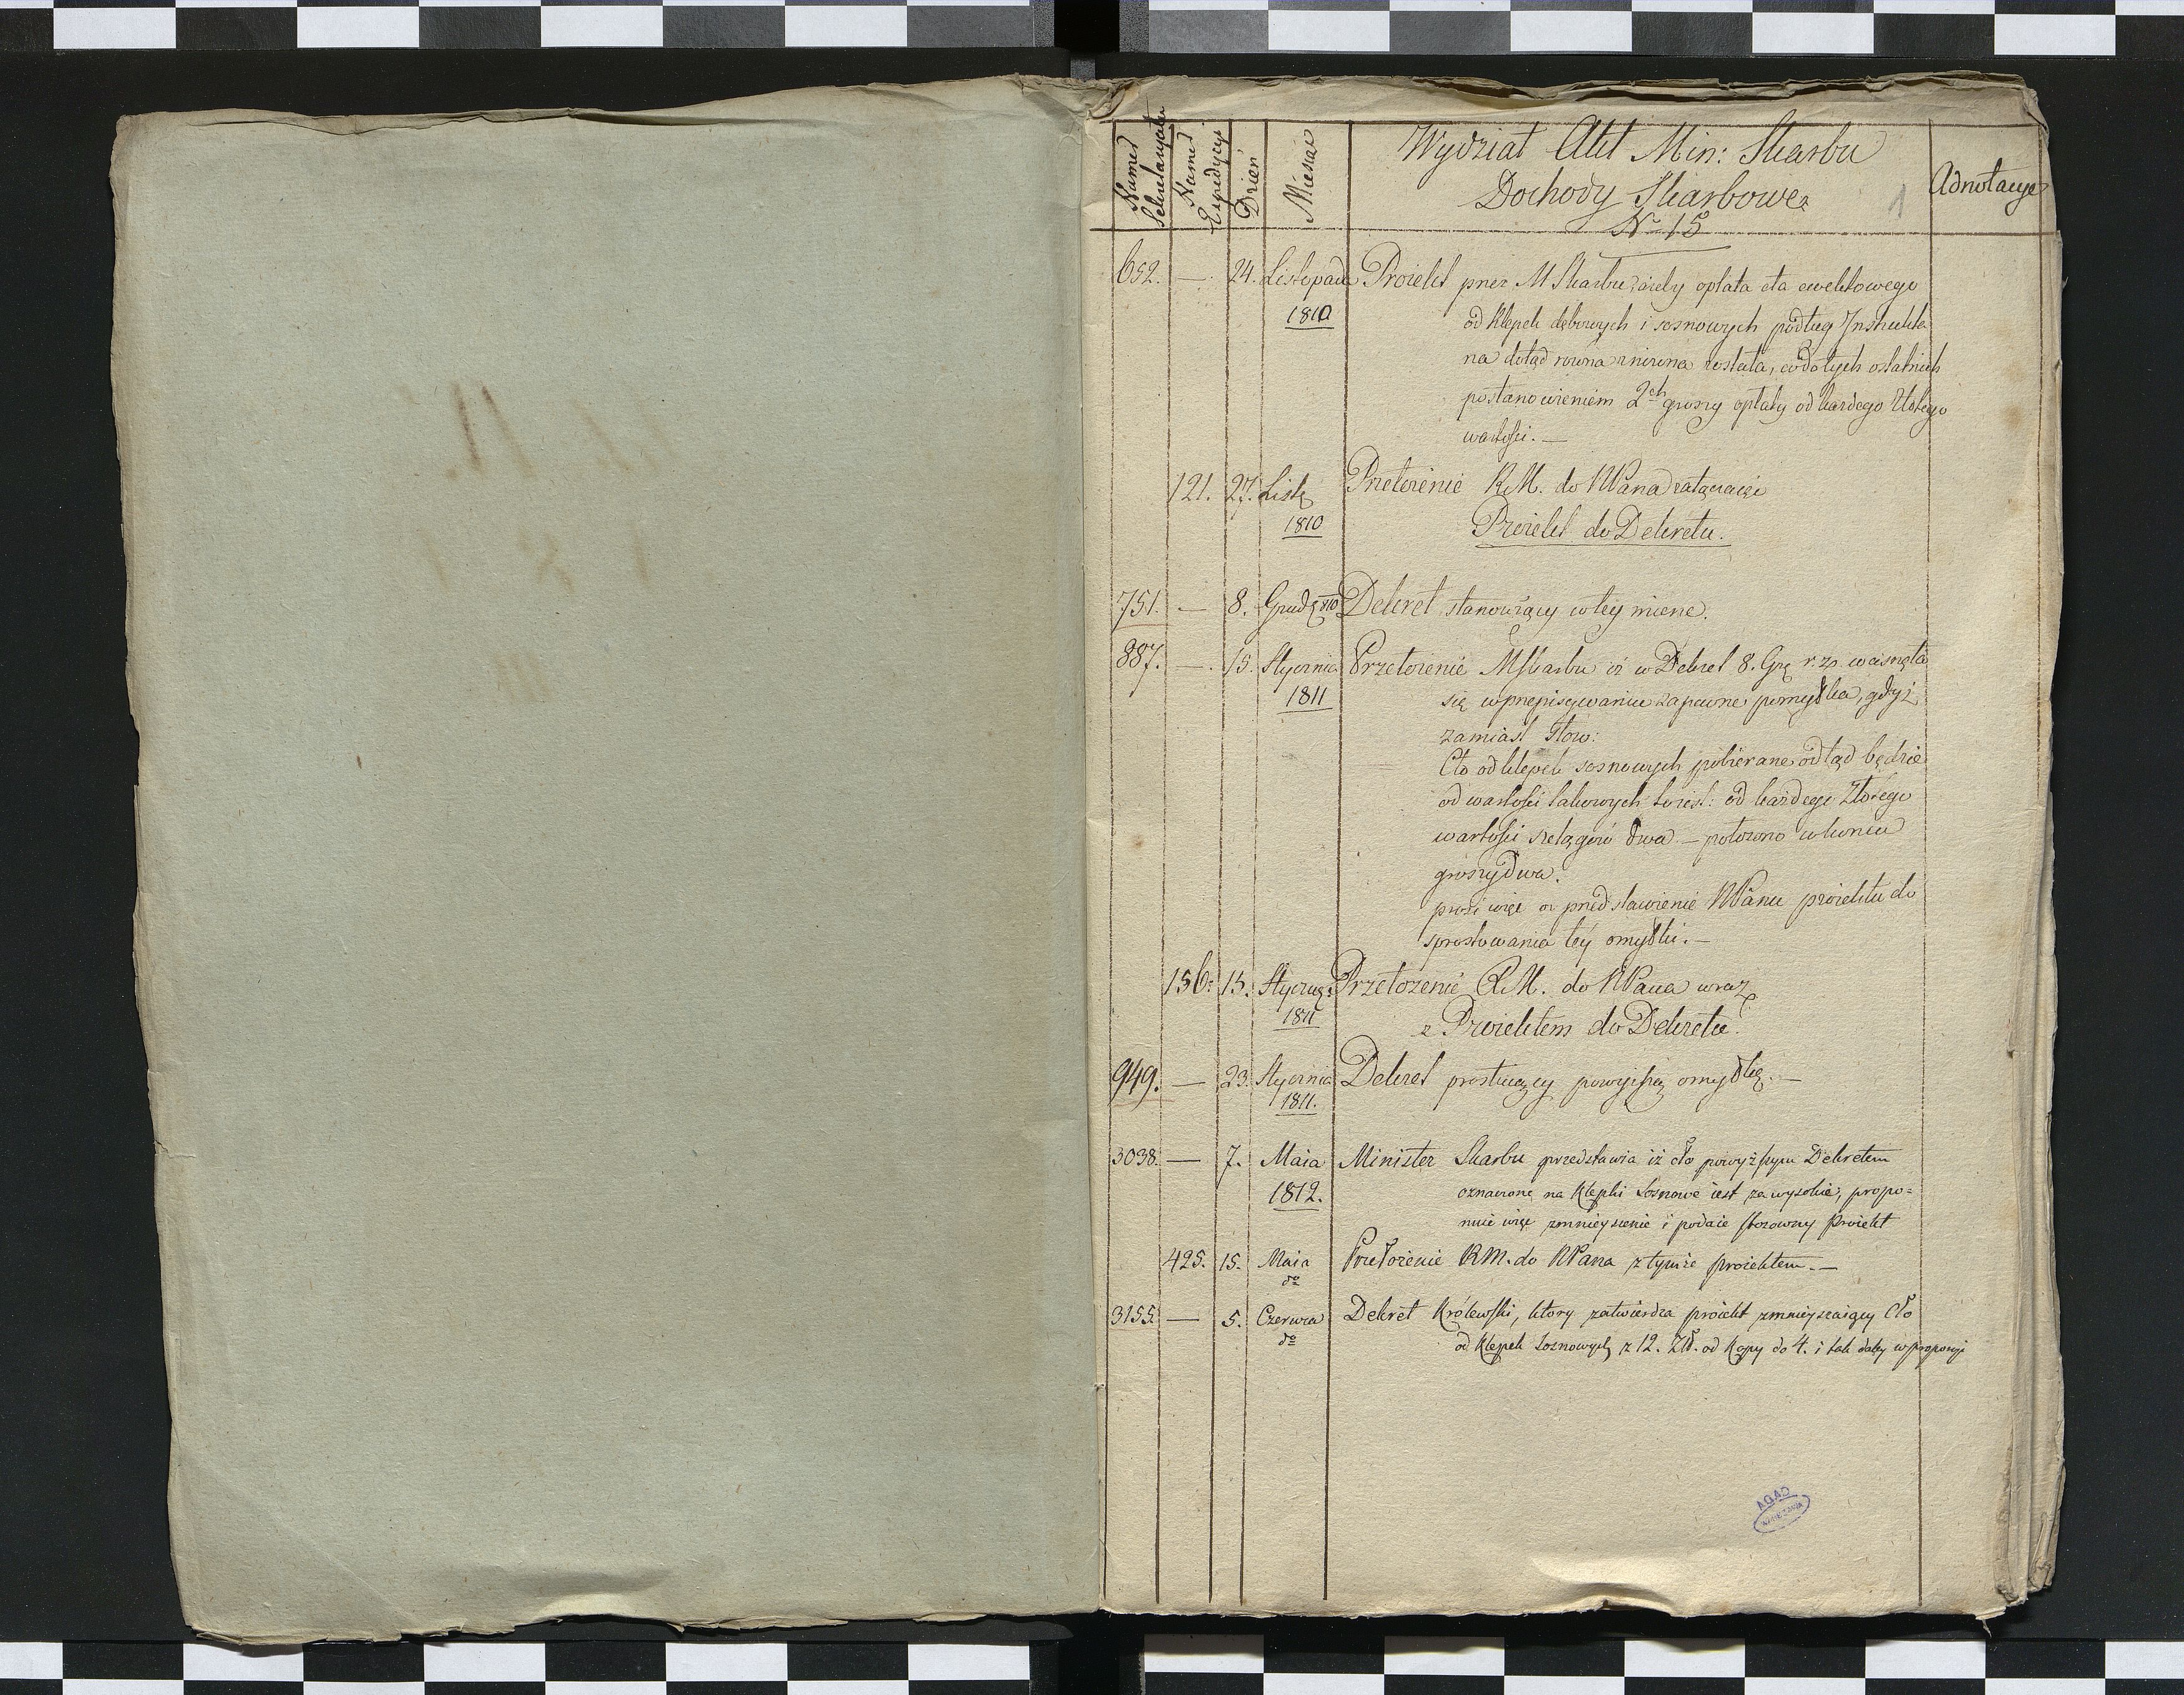 Numer Sekretaryatu
Numer Expedycyi
Dzień
Miesiąc
Wydział Akt Min: Skarbu
Dochody Skarbowe
Nro 15
1
Adnotacye
652. — 24. Listopada Proiekt przez M Skarbu ażeby opłata cła ewektowego
1810 od klepek dębowych i sosnowych podług Instrukta
na dotąd rowna zniżona została, co do tych ostatnich
postanowieniem 2ch groszy opłaty od każdego Złotego
wartości. —
121. 27. Listo 1810 Przełożenie R.M. do NPana załączaiące
Proiekt do Dekretu.
751. — 8. Grud 810 Dekret stanowiący w tey mierze.
887. — 15. Stycznia Przełożenie M Skarbu iż w Dekret 8. Gru r. z. wcisnęła
1811 się w przepisywaniu zapewne pomyłka, gdyż
zamiast słow:
Cło od klepek sosnowych pobierane odtąd będzie
od wartości takowych to iest: od każdego Złotego
wartości szelągow dwa — położono w końcu
groszy dwa.
prosi więc o przedstawienie NPanu proiektu do
sprostowania tey omyłki. —
156. 15. Stycz: Przełożenie R.M. do NPana wraz
1811 z Proiektem do Dekretu.
949. — 23. Stycznia Dekret prostuiący powyższą omyłkę. —
1811.
3038. — 7. Maia Minister Skarbu przedstawia iż cło powyższym Dekretem
1812. oznaczone na Klepki Sosnowe iest za wysokie, propo=
nuie więc zmnieyszenie i podaie stosowny Proiekt
425. 15. Maia Przełożenie RM. do NPana z tymże proiektem. —
do
3155. — 5. Czerwca Dekret Królewski, ktory zatwierdza proiekt zmnieyszaiący Cło
do od Klepek Sosnowych z 12. Zł. od Kopy do 4. i tak daley w proporcyi
AGAD
WARSZAWA